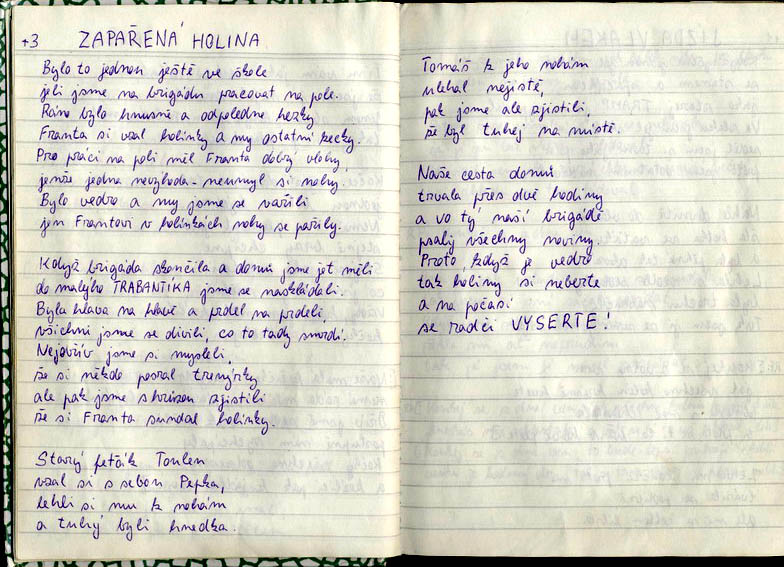 +3 ZAPAŘENÁ HOLINA
Bylo to jednou ještě ve škole
jeli jsme na brigádu pracovat na pole.
Ráno bylo hnusně a odpoledne hezky
Franta si vzal holinky a my ostatní kecky.
Pro práci na poli měl Franta dobrý vlohy,
jenže jedna nevýhoda - neumyl si nohy.
Bylo vedro a my jsme se vařili
jen Frantovi v holinkách nohy se pařily.
Když brigáda skončila a domů jsme jet měli
do malýho TRABANTÍKA jsme se naskládali.
Byla hlava na hlavě a prdel na prdeli,
všichni jsme se divili, co to tady smrdí.
Nejdřív jsme si mysleli,
že si někdo posral trenýrky
ale pak jsme s hrůzou zjistili
že si Franta sundal holinky.
Starý feťák Toulen
vzal si s sebou Pepka,
lehli si mu k nohám
a tuhý byli hnedka.
Tomáš k jeho nohám
ulehal nejistě,
pak jsme ale zjistili,
že byl tuhej na místě.
Naše cesta domů
trvala přes dvě hodiny
a vo tý naší brigádě
psaly všechny noviny.
Proto, když je vedro
tak holiny si neberte
a na počasí
se radči VYSERTE!